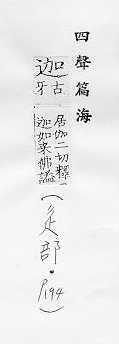 四聲篇海
迦
古牙
居伽二切釋
迦如來佛謚
(辵部・P194)